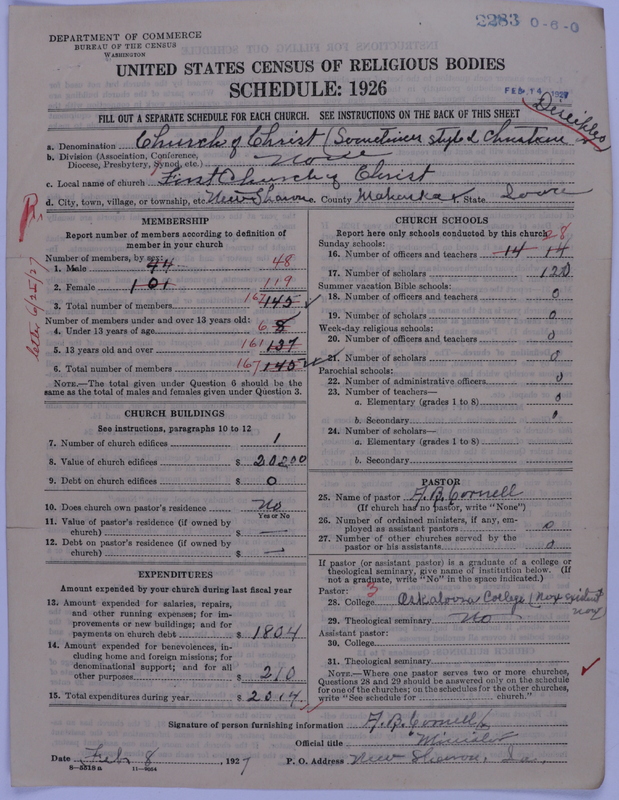 2283 0-6-0
DEPARTMENT OF COMMERCE
BUREAU OF THE CENSUS
WASHINGTON
UNITED STATES CENSUS OF RELIGIOUS BODIES
SCHEDULE: 1926
FEB 14 1927
Disciples
FILL OUT A SEPARATE SCHEDULE FOR EACH CHURCH. SEE INSTRUCTIONS ON THE BACK OF THIS SHEET
a. Denomination Church of Christ (Sometimes styled Christian
b. Division (Association, Conference, Diocese, Presbytery, Synod, etc.) None
c. Local name of church First Church of Christ
d. City, town, village, or township, etc. New Sharon County Mahaska State Iowa
letter 6/25/27
MEMBERSHIP
Report number of members according to definition of
member in your church
Number of members, by sex:
1. Male 44 48
2. Female 101 119
3. Total number of members 167 145
Number of members under and over 13 years old:
4. Under 13 years of age 6 8
5. 13 years old and over 161 137
6. Total number of members 167 145
NOTE.—The total given under Question 6 should be the
same as the total of males and females given under Question 3.
CHURCH BUILDINGS
See instructions, paragraphs 10 to 12
7. Number of church edifices 1
8. Value of church edifices $ 20200
9. Debt on church edifices $ 0
10. Does church own pastor's residence No
Yes or No
11. Value of pastor's residence (if owned by
church) $ —
12. Debt on pastor's residence (if owned by
church) $ —
EXPENDITURES
Amount expended by your church during last fiscal year
13. Amount expended for salaries, repairs,
and other running expenses; for im-
provements or new buildings; and for
payments on church debt $ 1804
14. Amount expended for benevolences, in-
cluding home and foreign missions; for
denominational support; and for all
other purposes $ 210
15. Total expenditures during year $ 2014
CHURCH SCHOOLS
Report here only schools conducted by this church
Sunday schools: 28
16. Number of officers and teachers 14 14
17. Number of scholars 120
Summer vacation Bible schools:
18. Number of officers and teachers 0
19. Number of scholars 0
Week-day religious schools:
20. Number of officers and teachers 0
21. Number of scholars 0
Parochial schools:
22. Number of administrative officers 0
23. Number of teachers—
a. Elementary (grades 1 to 8) 0
b. Secondary 0
24. Number of scholars—
a. Elementary (grades 1 to 8)
b. Secondary
PASTOR
25. Name of pastor F. B. Cornell
(If church has no pastor, write "None")
26. Number of ordained ministers, if any, em-
ployed as assistant pastors 0
27. Number of other churches served by the
pastor or his assistants 0
If pastor (or assistant pastor) is a graduate of a college or
theological seminary, give name of institution below. (If
not a graduate, write "No" in the space indicated.)
Pastor: 3
28. College Oskaloosa College (Non existent now
29. Theological seminary No
Assistant pastor:
30. College
31. Theological seminary
NOTE.—Where one pastor serves two or more churches,
Questions 28 and 29 should be answered only on the schedule
for one of the churches; on the schedules for the other churches,
write "See schedule for church."
Signature of person furnishing information F. B. Cornell
Official title Minister
Date Feb 8, 1927 P. O. Address New Sharon, Ia.
8—5518 a